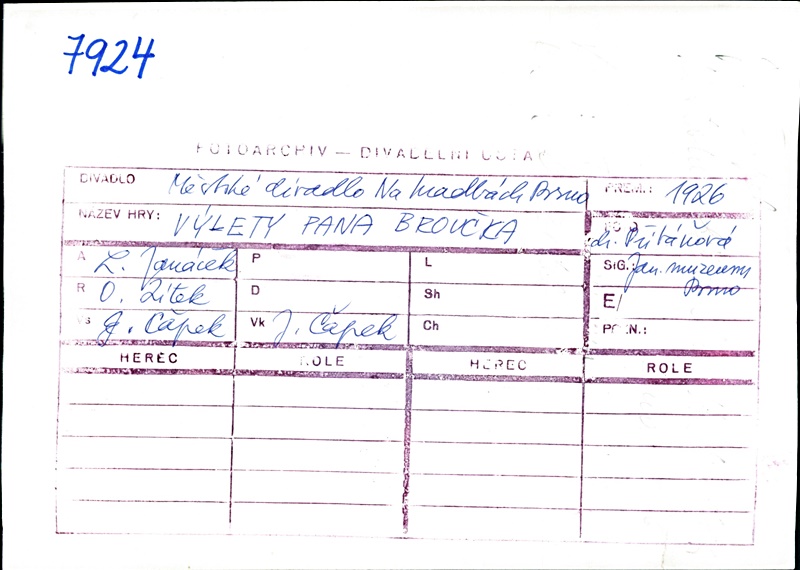 7924
FOTOARCHIV — DIVADELNÍ ÚSTAV
DIVADLO Městské divadlo Na hradbách Brno PREM.: 1926
NÁZEV HRY: VÝLETY PANA BROUČKA
A L. Janáček P L SIG.: Jan. muzeum Brno
R O. Zítek D Sh E/
Vs J. Čapek Vk J. Čapek Ch POZN.:
HEREC ROLE HEREC ROLE